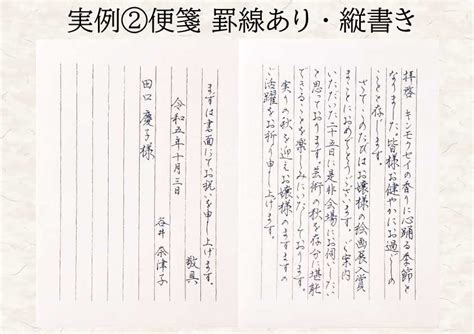 実例②便箋 罫線あり・縦書き
拝啓 キンモクセイの香りに心踊る季節と
なりました。皆様お健やかにお過ごしの
ことと存じます。
さて、このたびはお嬢様の絵画展入賞
まことにおめでとうございます。ご案内
いただいた二十五日に是非会場にお伺いしたい
と思っております。芸術の秋を存分に堪能
できることを楽しみにいたしております。
実りの秋を迎えお嬢様のますますの
ご活躍をお祈り申し上げます。
まずは書面にてお祝いを申し上げます。
敬具
令和五年十月三日
谷井 奈津子
田口慶子様